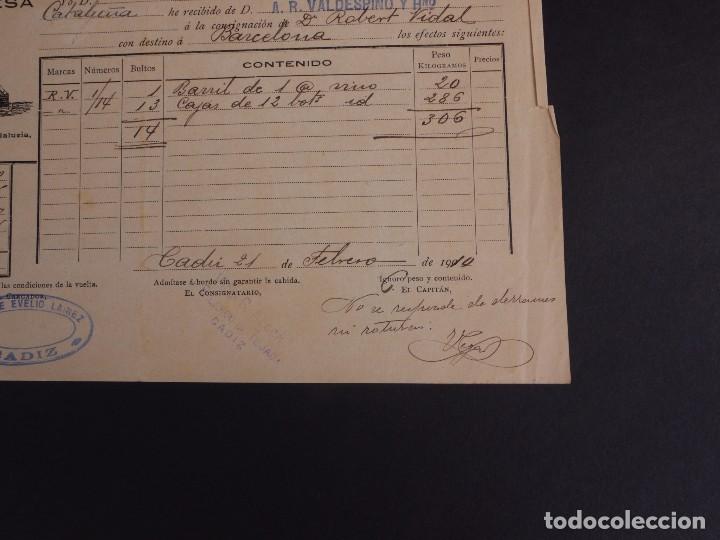 ESA
Cataluña he recibido de D. A. R. VALDESPINO, Y HNO
á la consignación de D. Robert Vidal
con destino á Barcelona los efectos siguientes:
Marcas Números Bultos CONTENIDO Peso KILOGRAMOS Precios
R.V. 1/14 1 Barril de 1 @ vino 20
" 13 Cajas de 12 bots id 286
14 306
dalucía,
Cadiz 21 de Febrero de 1910
las condiciones de la vuelta.
Admítase á bordo sin garantir la cabida. Ignoro peso y contenido.
EL CONSIGNATARIO, EL CAPITÁN,
DE EVELIO LAINEZ
CADIZ
CADIZ
No se responde de derrames
ni roturas.
Vega
todocoleccion
todocoleccion.net